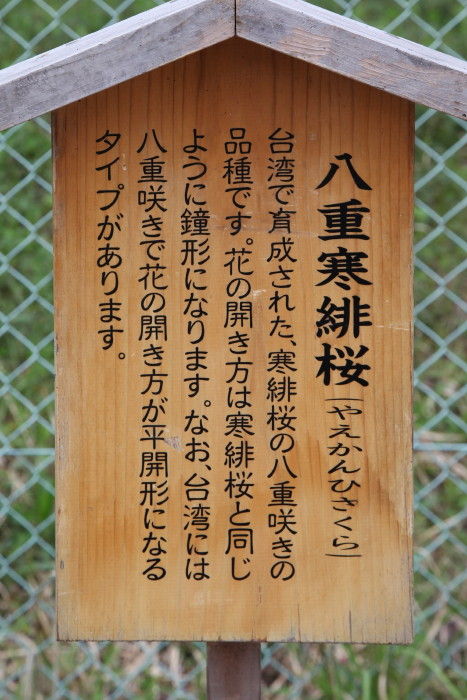 八重寒緋桜(やえかんひさくら)
台湾で育成された、寒緋桜の八重咲きの
品種です。花の開き方は寒緋桜と同じ
ように鐘形になります。なお、台湾には
八重咲きで花の開き方が平開形になる
タイプがあります。